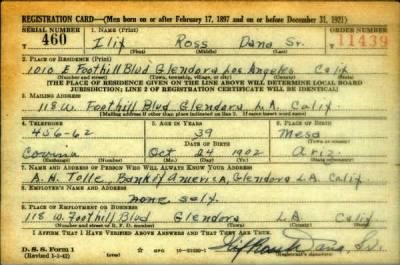 REGISTRATION CARD—(Men born on or after February 17, 1897 and on or before December 31, 1921)
SERIAL NUMBER 1. NAME (Print) ORDER NUMBER
460 Ross Dana Sr. 11439
(First) (Middle) (Last)
2. PLACE OF RESIDENCE (Print)
1010 E Foothill Blvd Glendora Los Angeles Calif
(Number and street) (Town, township, village, or city) (County) (State)
[THE PLACE OF RESIDENCE GIVEN ON THE LINE ABOVE WILL DETERMINE LOCAL BOARD
JURISDICTION; LINE 2 OF REGISTRATION CERTIFICATE WILL BE IDENTICAL]
3. MAILING ADDRESS
118 W. Foothill Blvd Glendora L.A. Calif
[Mailing address if other than place indicated on line 2. If same insert word same]
4. TELEPHONE 5. AGE IN YEARS 6. PLACE OF BIRTH
456-62 39 Mesa
DATE OF BIRTH (Town or county)
Covina Oct 24 1902 Ariz.
(Exchange) (Number) (Mo.) (Day) (Yr.) (State or country)
7. NAME AND ADDRESS OF PERSON WHO WILL ALWAYS KNOW YOUR ADDRESS
A. N. Tolle, Bank of America, Glendora L.A. Calif
8. EMPLOYER'S NAME AND ADDRESS
none self.
9. PLACE OF EMPLOYMENT OR BUSINESS
118 W. Foothill Blvd Glendora L.A. Calif
(Number and street or R. F. D. number) (Town) (County) (State)
I AFFIRM THAT I HAVE VERIFIED ABOVE ANSWERS AND THAT THEY ARE TRUE.
D. S. S. Form 1 GPO Ross Dana, Sr.
(Revised 1-1-42)